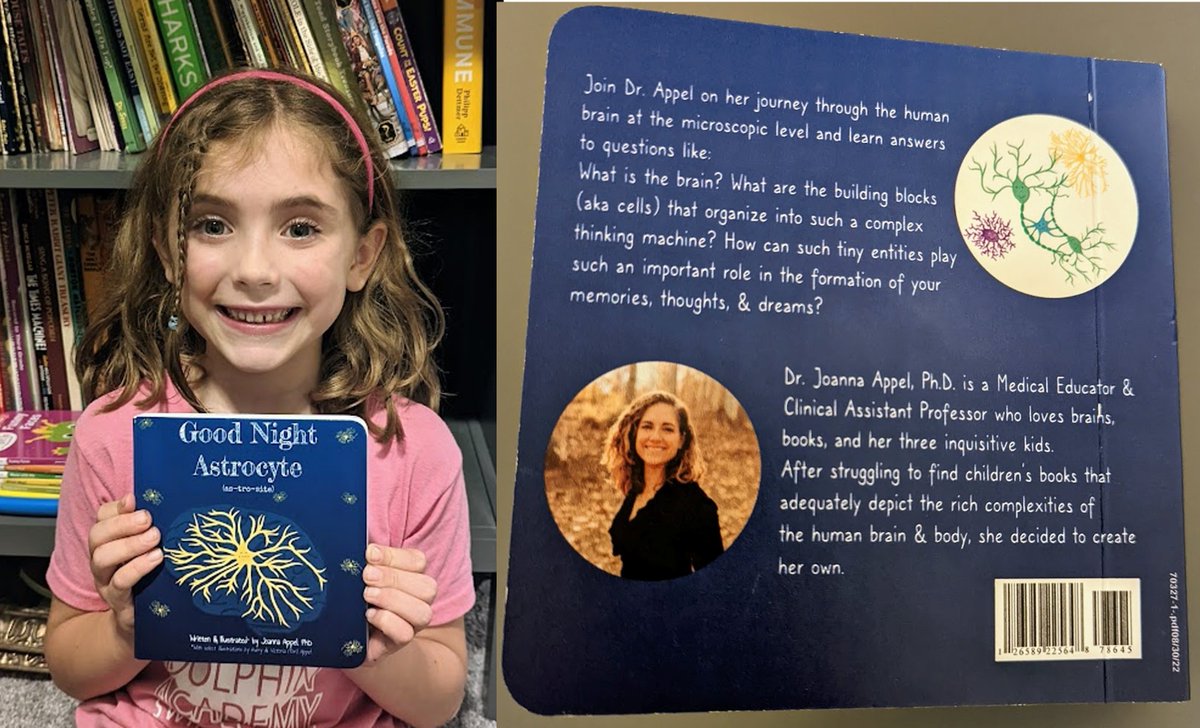 SHARKS
COUNT the EASTER PUPS!
IMMUNE
Philipp Dettmer
THE TIMES MACHINE!
Good Night
Astrocyte
(as-tro-site)
Written & Illustrated by Joanna Appel PhD
DOLPHIN
ACADEMY
Join Dr. Appel on her journey through the human
brain at the microscopic level and learn answers
to questions like:
What is the brain? What are the building blocks
(aka cells) that organize into such a complex
thinking machine? How can such tiny entities play
such an important role in the formation of your
memories, thoughts, & dreams?
Dr. Joanna Appel, Ph.D. is a Medical Educator &
Clinical Assistant Professor who loves brains,
books, and her three inquisitive kids.
After struggling to find children's books that
adequately depict the rich complexities of
the human brain & body, she decided to create
her own.
1 26589 22564 8 78645
70327-1-.pdf08/30/22